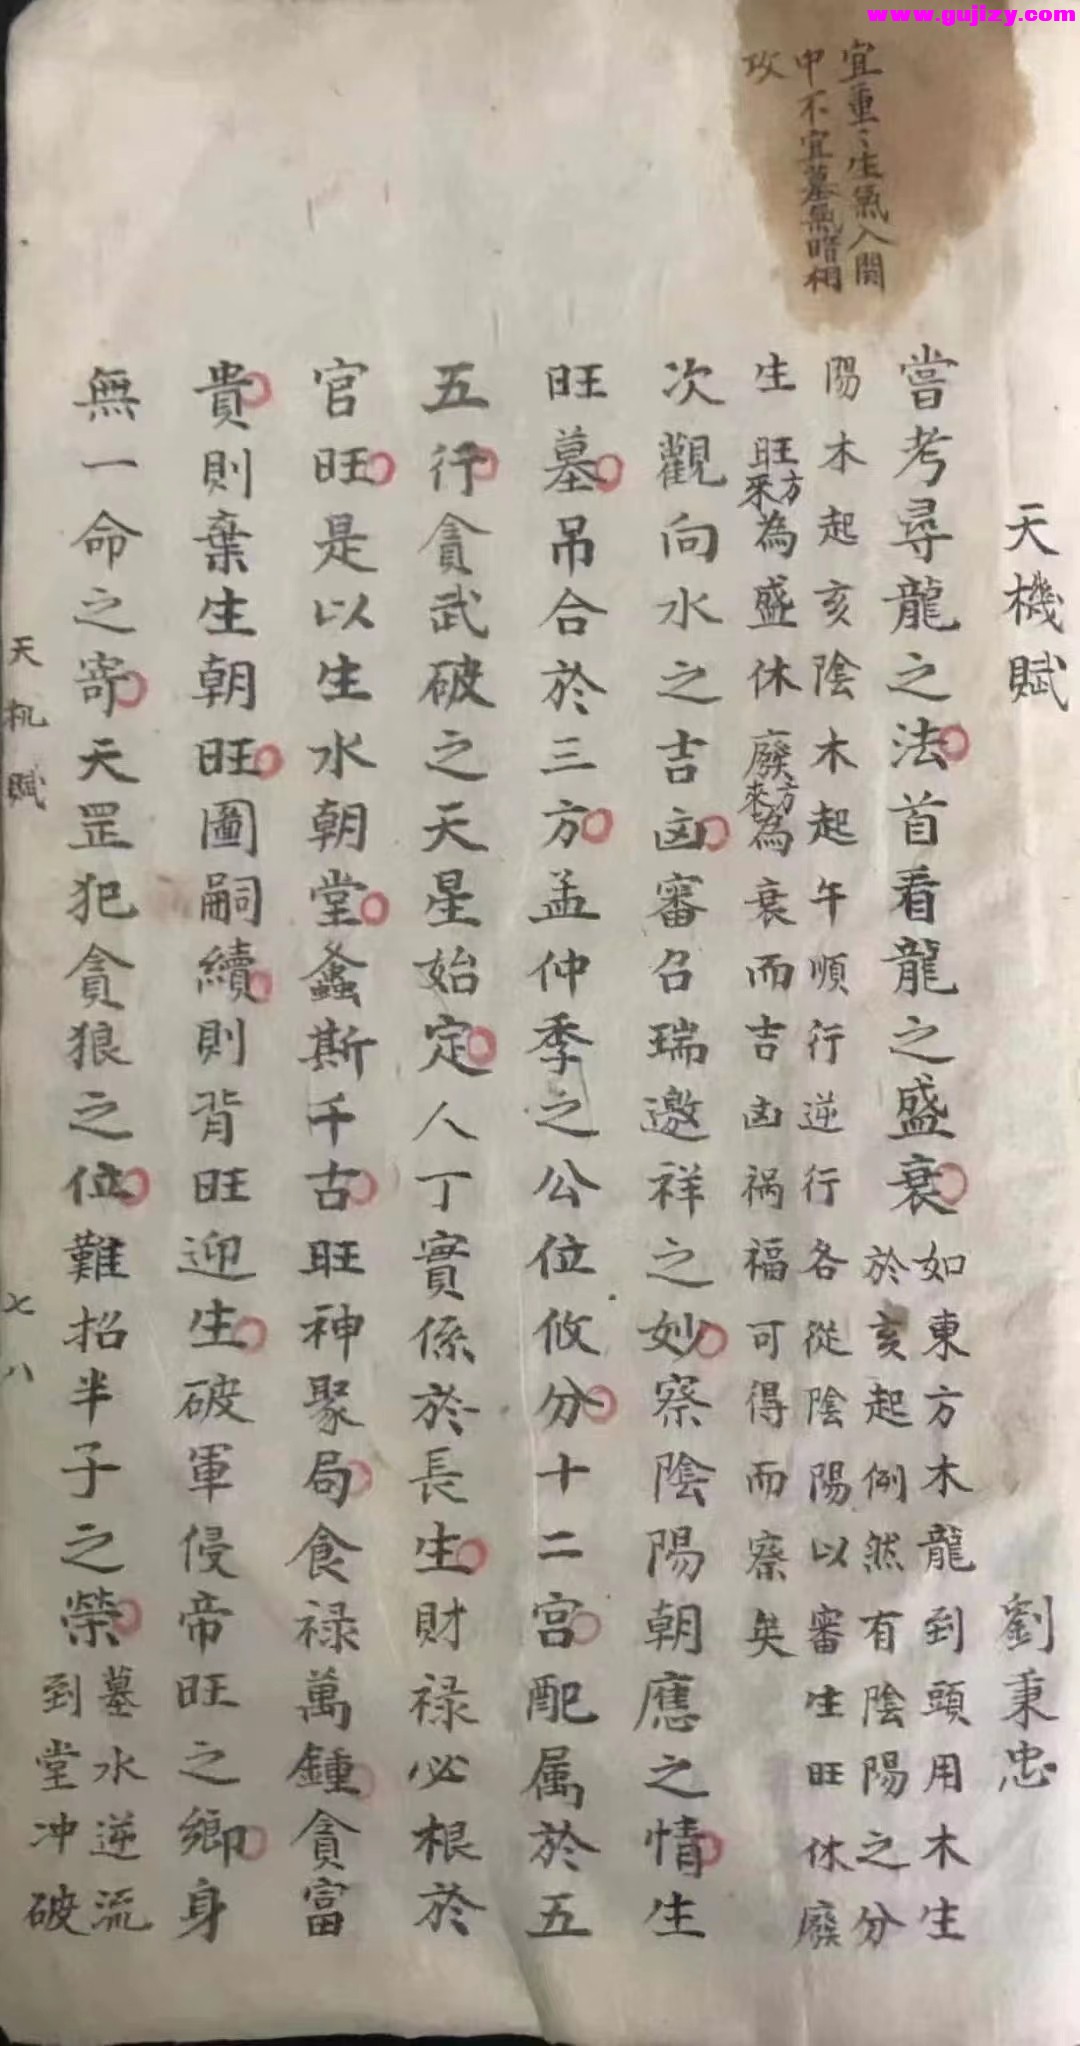 www.gujizy.com
宜重〻生氣入關
中不宜墓氣暗相
攻
天機賦 劉秉忠
嘗考尋龍之法首看龍之盛衰
如東方木龍到頭用木生
於亥起例然有陰陽之分
陽木起亥陰木起午順行逆行各從陰陽以審生旺休廢
生旺來方為盛休廢來方為衰而吉凶祸福可得而察矣
次觀向水之吉凶審召瑞邀祥之妙察陰陽朝應之情生
旺墓吊合於三方孟仲季之公位攸分十二宮配属於五
五行貪武破之天星始定人丁實係於長生財禄必根於
官旺是以生水朝堂螽斯千古旺神聚局食禄萬鍾貪富
貴則棄生朝旺圖嗣續則背旺迎生破軍侵帝旺之鄉身
無一命之寄天罡犯貪狼之位難招半子之榮
墓水逆流
到堂冲破
天机賦 七 八